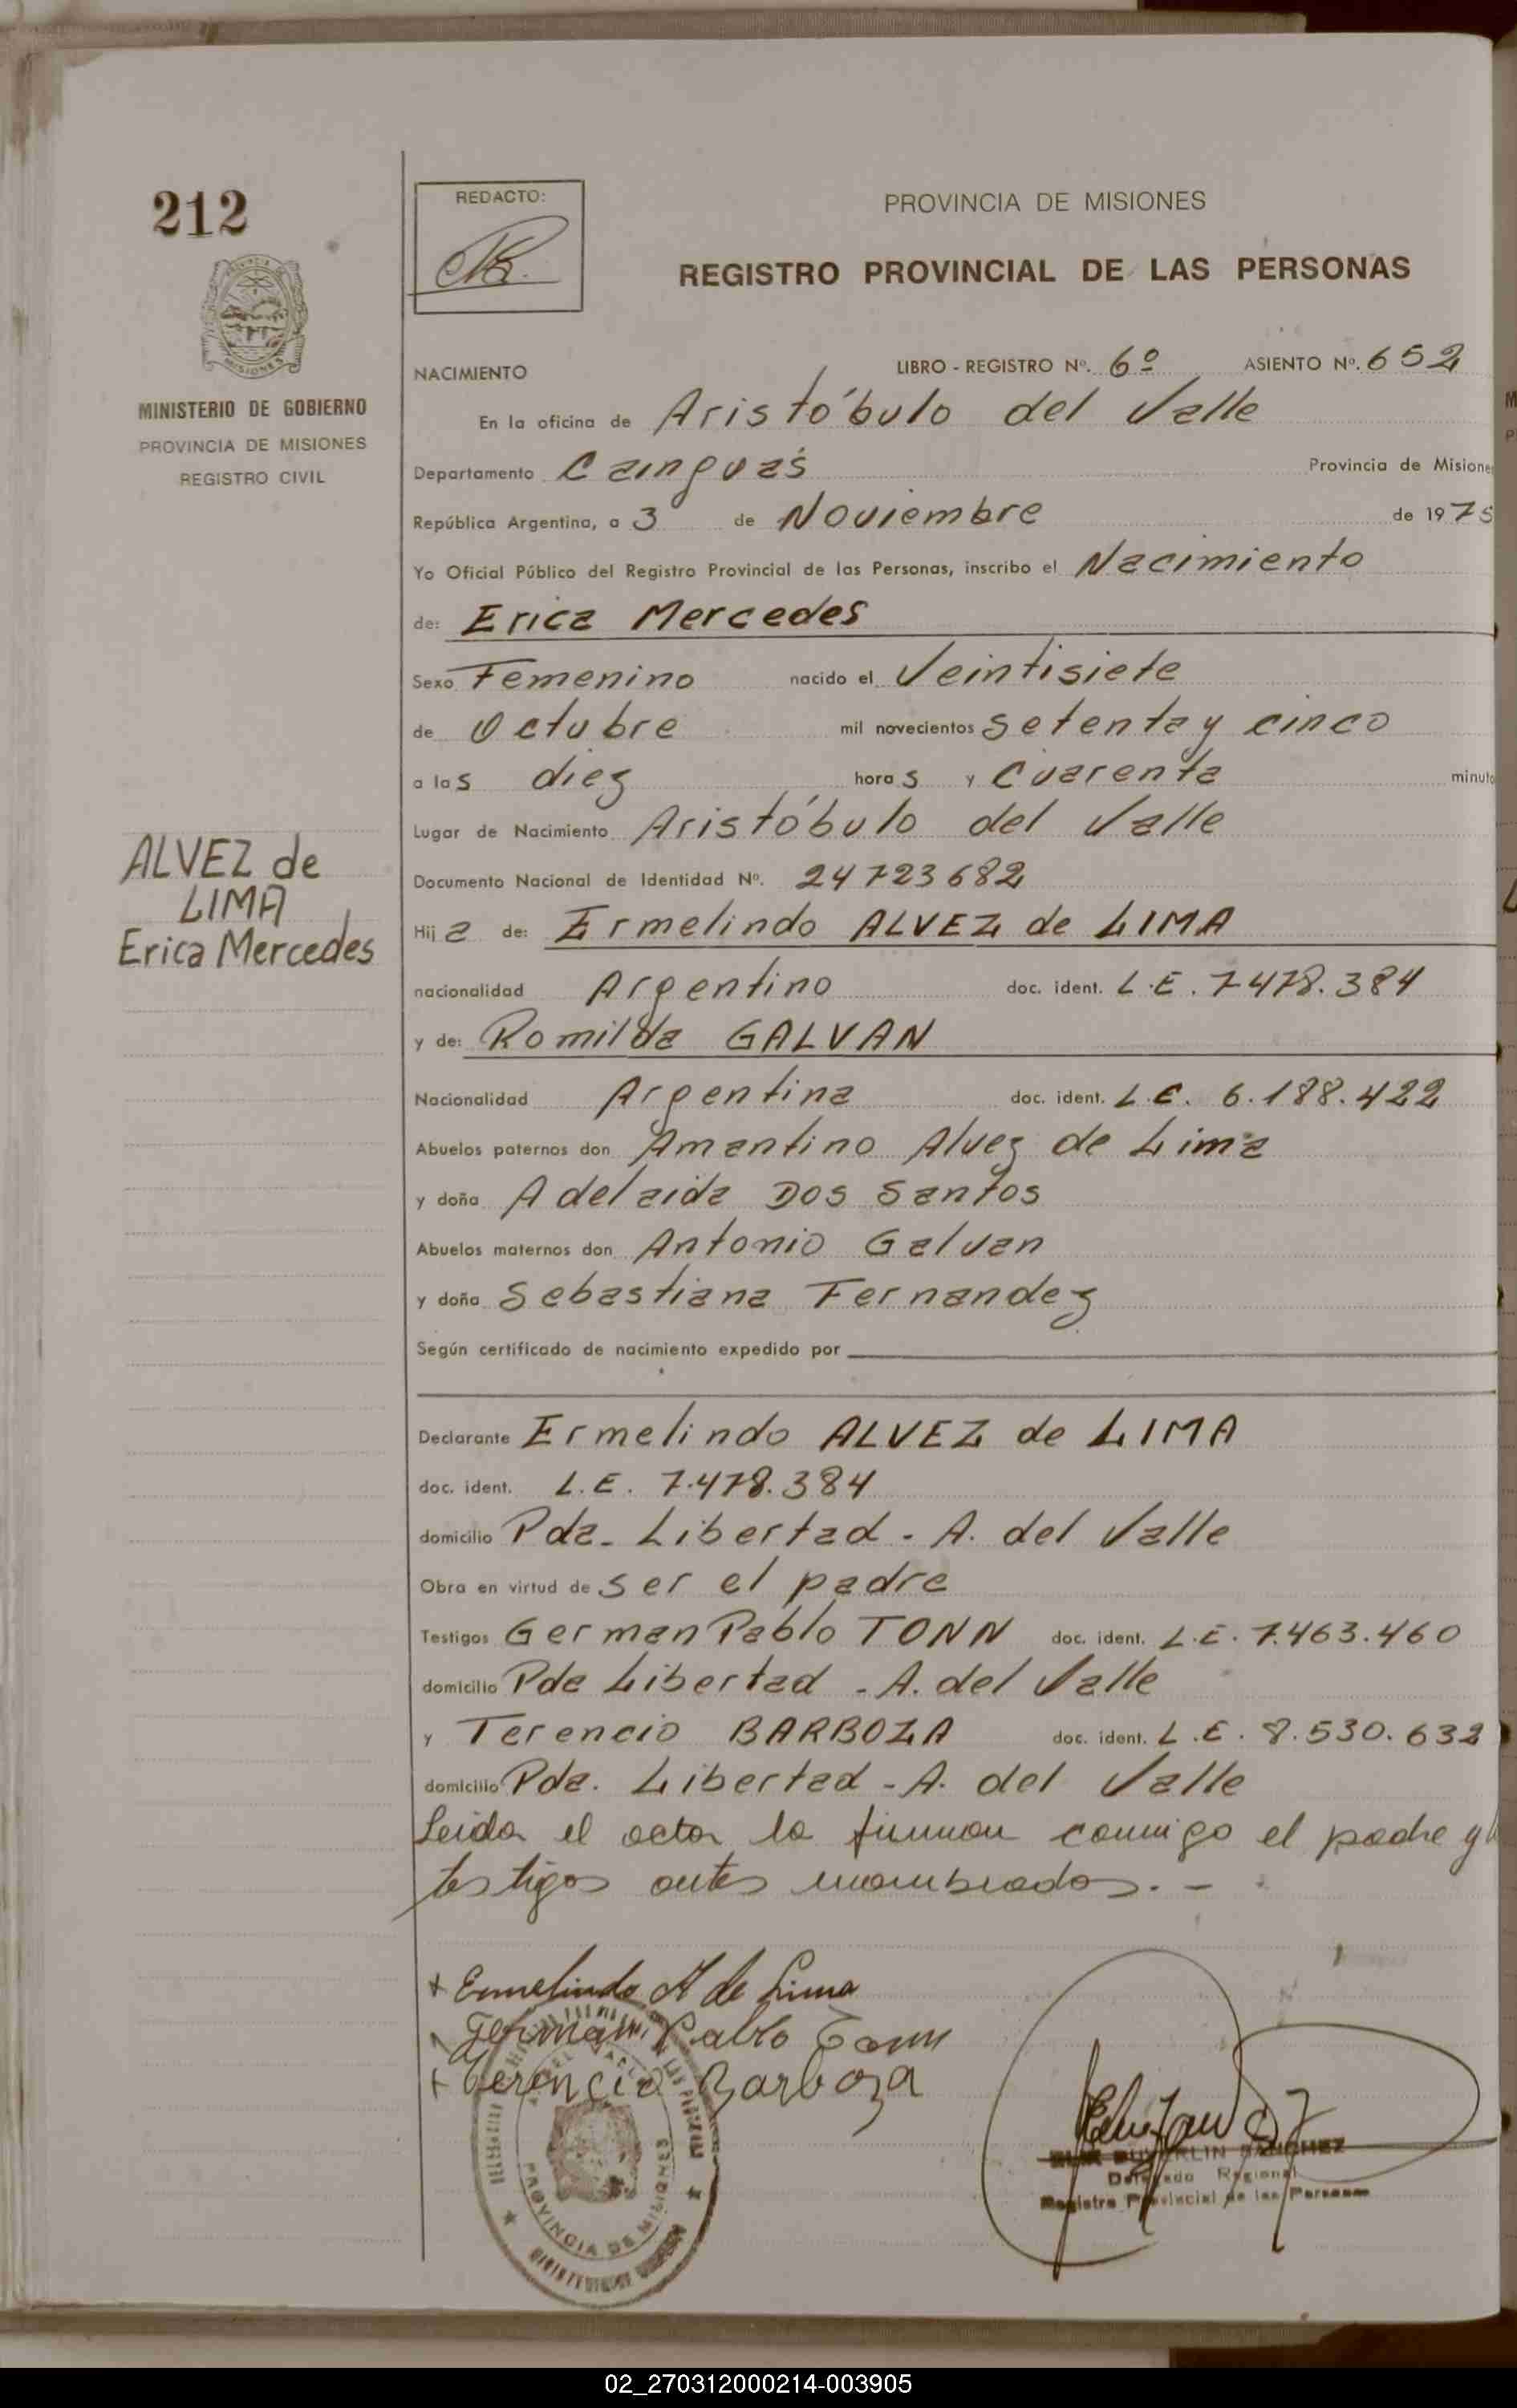 212
REDACTO:
PROVINCIA DE MISIONES
REGISTRO PROVINCIAL DE LAS PERSONAS
MISIONES
MINISTERIO DE GOBIERNO
PROVINCIA DE MISIONES
REGISTRO CIVIL
NACIMIENTO LIBRO - REGISTRO Nº. 6º ASIENTO Nº. 652
En la oficina de Aristóbulo del Valle
Departamento Cainguás Provincia de Misione
República Argentina, a 3 de Noviembre de 1975
Yo Oficial Público del Registro Provincial de las Personas, inscribo el Nacimiento
de: Erica Mercedes
Sexo Femenino nacido el Veintisiete
de Octubre mil novecientos setenta y cinco
a las diez horas y cuarenta minuto
Lugar de Nacimiento Aristóbulo del Valle
ALVEZ de
LIMA
Erica Mercedes
Documento Nacional de Identidad Nº. 24723682
Hija de: Ermelindo ALVEZ de LIMA
nacionalidad Argentino doc. ident. L.E. 7478.384
y de: Romilda GALVAN
Nacionalidad Argentina doc. ident. L.C. 6.188.422
Abuelos paternos don Amantino Alvez de Lima
y doña Adelaida Dos Santos
Abuelos maternos don Antonio Galvan
y doña Sebastiana Fernandez
Según certificado de nacimiento expedido por
Declarante Ermelindo ALVEZ de LIMA
doc. ident. L.E. 7.478.384
domicilio Pda. Libertad - A. del Valle
Obra en virtud de ser el padre
Testigos German Pablo TONN doc. ident. L.E. 7.463.460
domicilio Pda Libertad - A. del Valle
y Terencio BARBOZA doc. ident. L.E. 8.530.632
domicilio Pda. Libertad - A. del Valle
Leida el acta la firman conmigo el padre y
testigos antes nombrados. -
+ Ermelindo A de Lima
+ German Pablo Tonn
+ Terencio Barboza
PROVINCIA DE MISIONES
SANCHEZ
Delegado Regional
Registro Provincial de las Personas
02_270312000214-003905